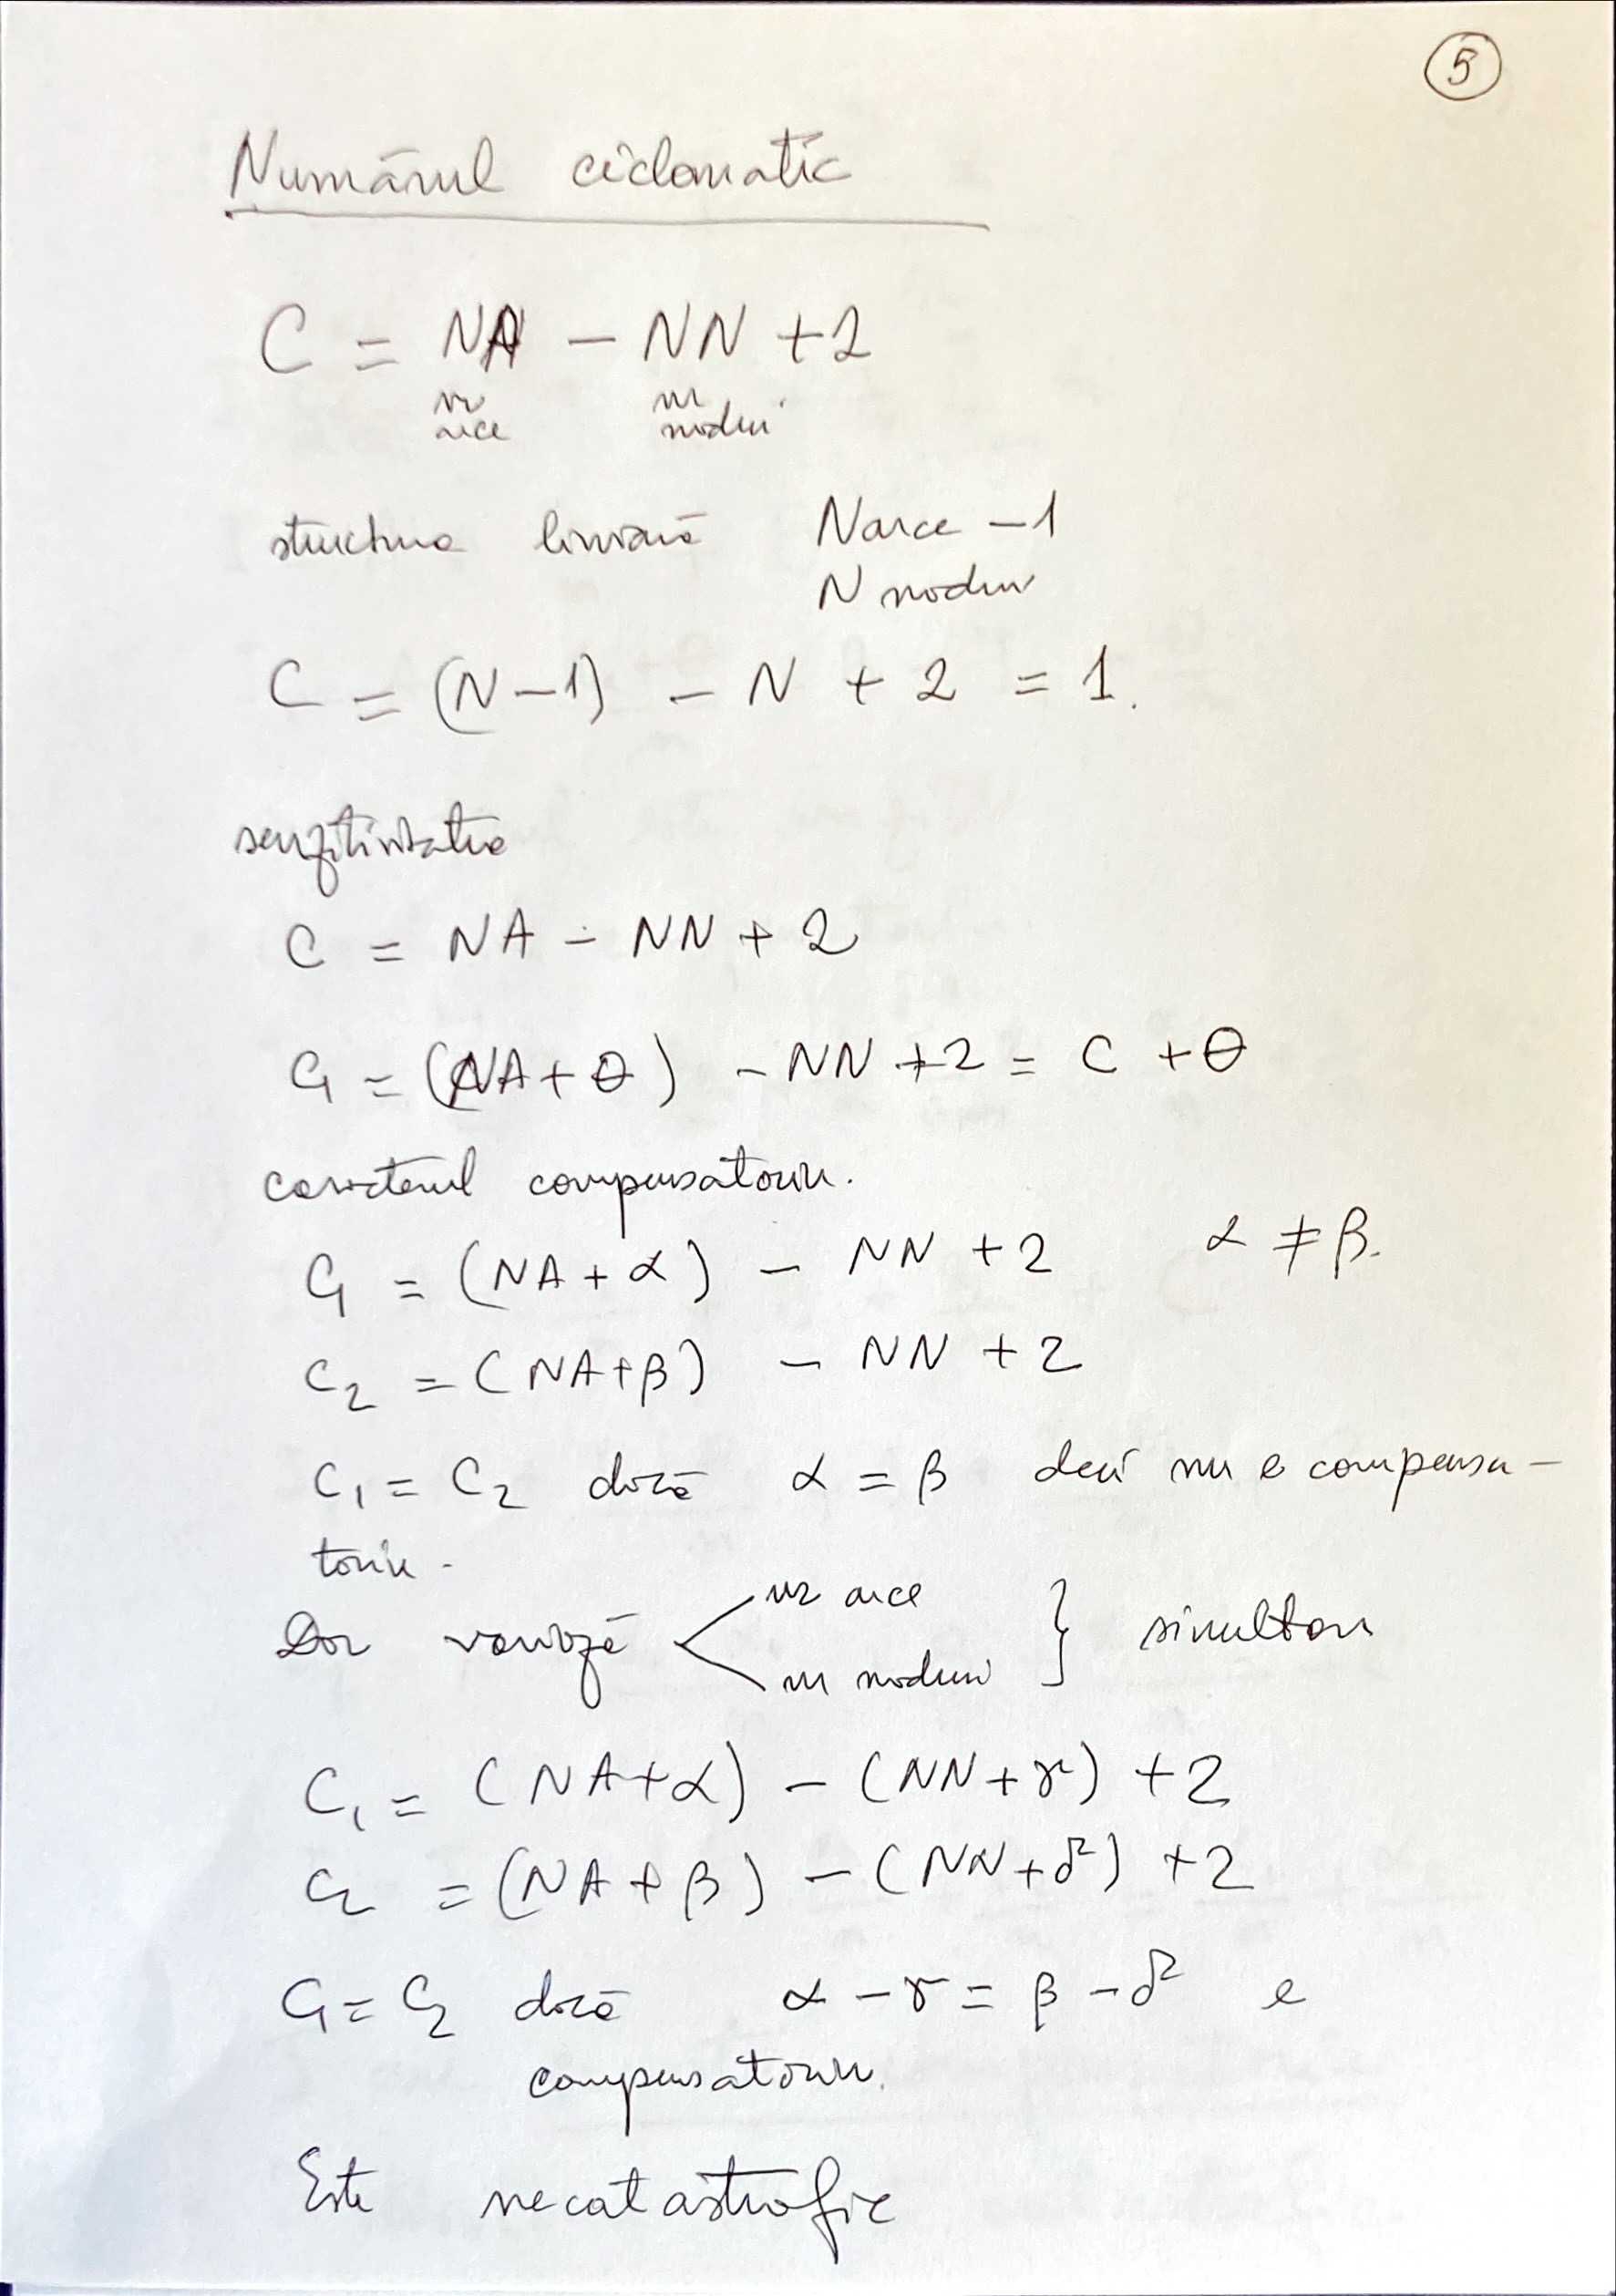 5
Numărul ciclomatic
C = NA - NN + 2
nr nr
arce noduri
structura liniară Narce - 1
N noduri
C = (N-1) - N + 2 = 1.
senzitivitatea
C = NA - NN + 2
C₁ = (NA + θ) - NN + 2 = C + θ
caracterul compensatoriu.
C₁ = (NA + α) - NN + 2 α ≠ β.
C₂ = (NA + β) - NN + 2
C₁ = C₂ dacă α = β deci nu e compensa-
toriu.
Dar variază nr arce } simultan
nr noduri
C₁ = (NA + α) - (NN + γ) + 2
C₂ = (NA + β) - (NN + δ) + 2
C₁ = C₂ dacă α - γ = β - δ e
compensatoriu.
Este necatastrofic